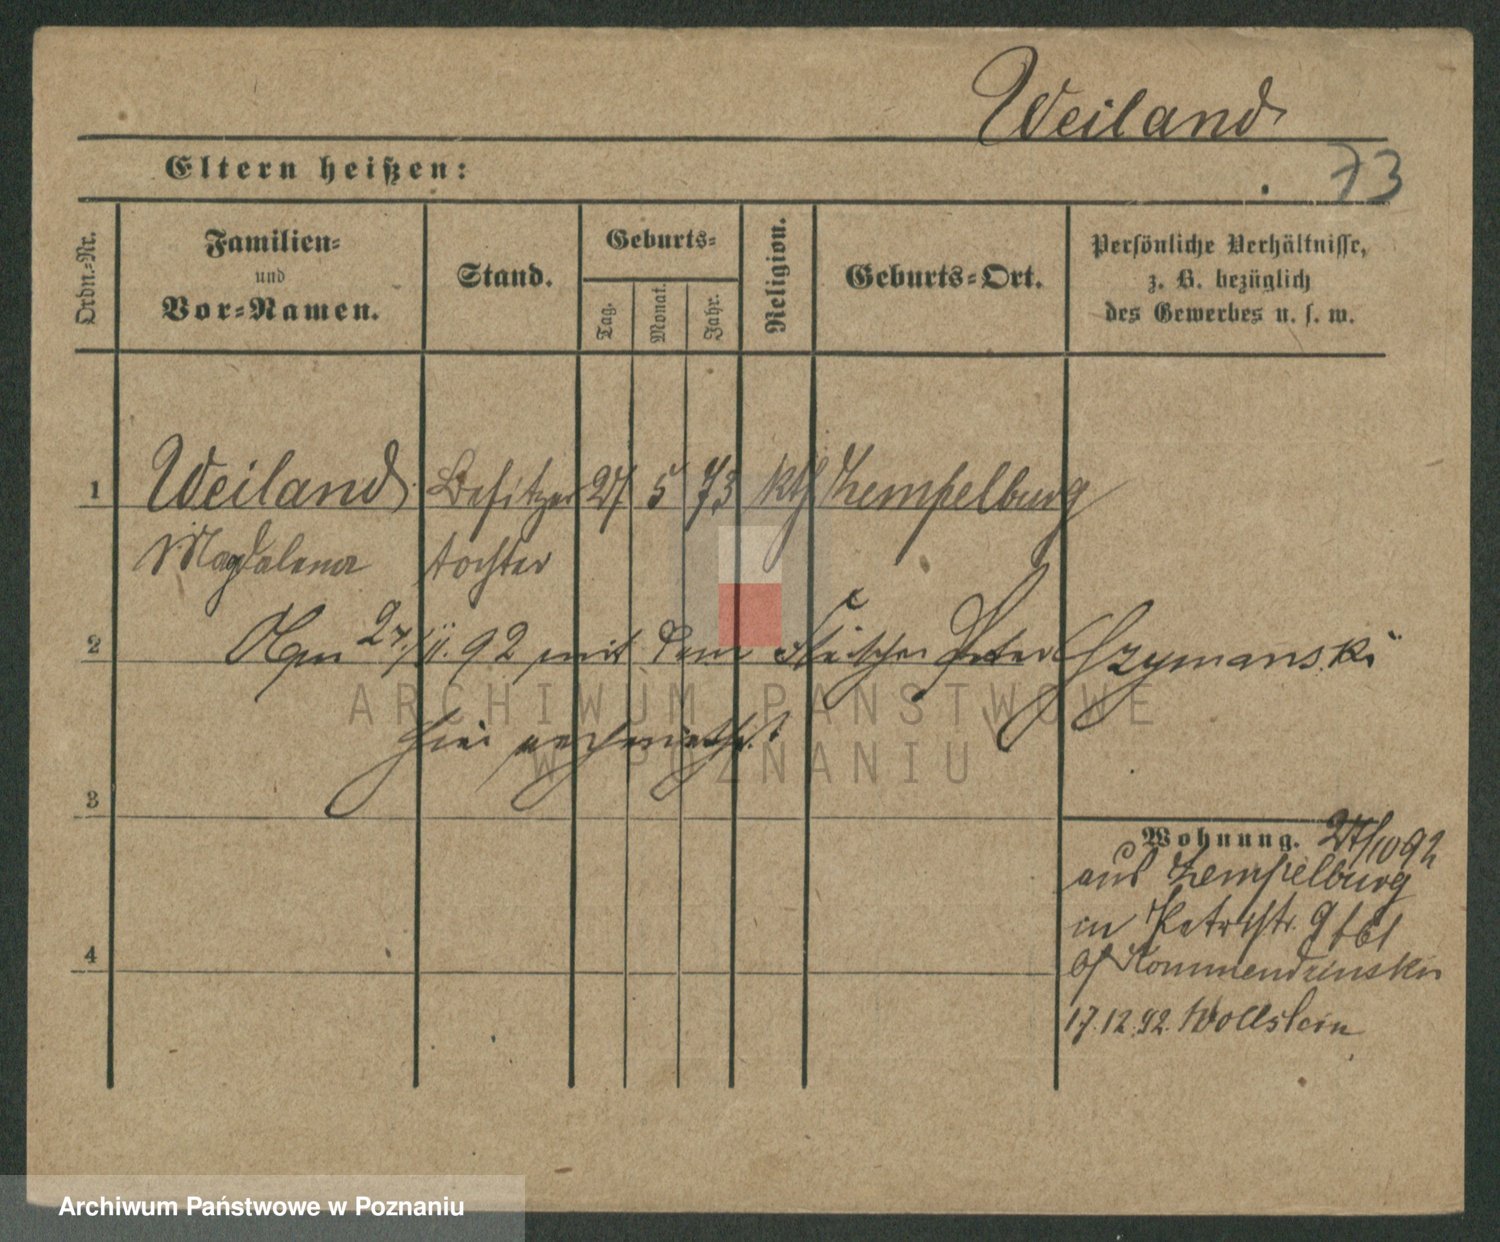 Weiland
73
Eltern heißen:
Ordn.-Nr.
Familien-
und
Vor-Namen.
Stand.
Geburts-
Tag.
Monat.
Jahr.
Religion.
Geburts-Ort.
Persönliche Verhältnisse,
z. B. bezüglich
des Gewerbes u. s. w.
1 Weiland Besitzer 27 5 73 kth Zempelburg
Magdalena tochter
2 Am 27/11. 92 mit dem Fleischer Peter Szymanski
hier verheirathet
3
Wohnung. 27/10 92
aus Zempelburg
in Petristr. 9
4
17.12.92. Wollstein
ARCHIWUM PAŃSTWOWE
W POZNANIU
Archiwum Państwowe w Poznaniu